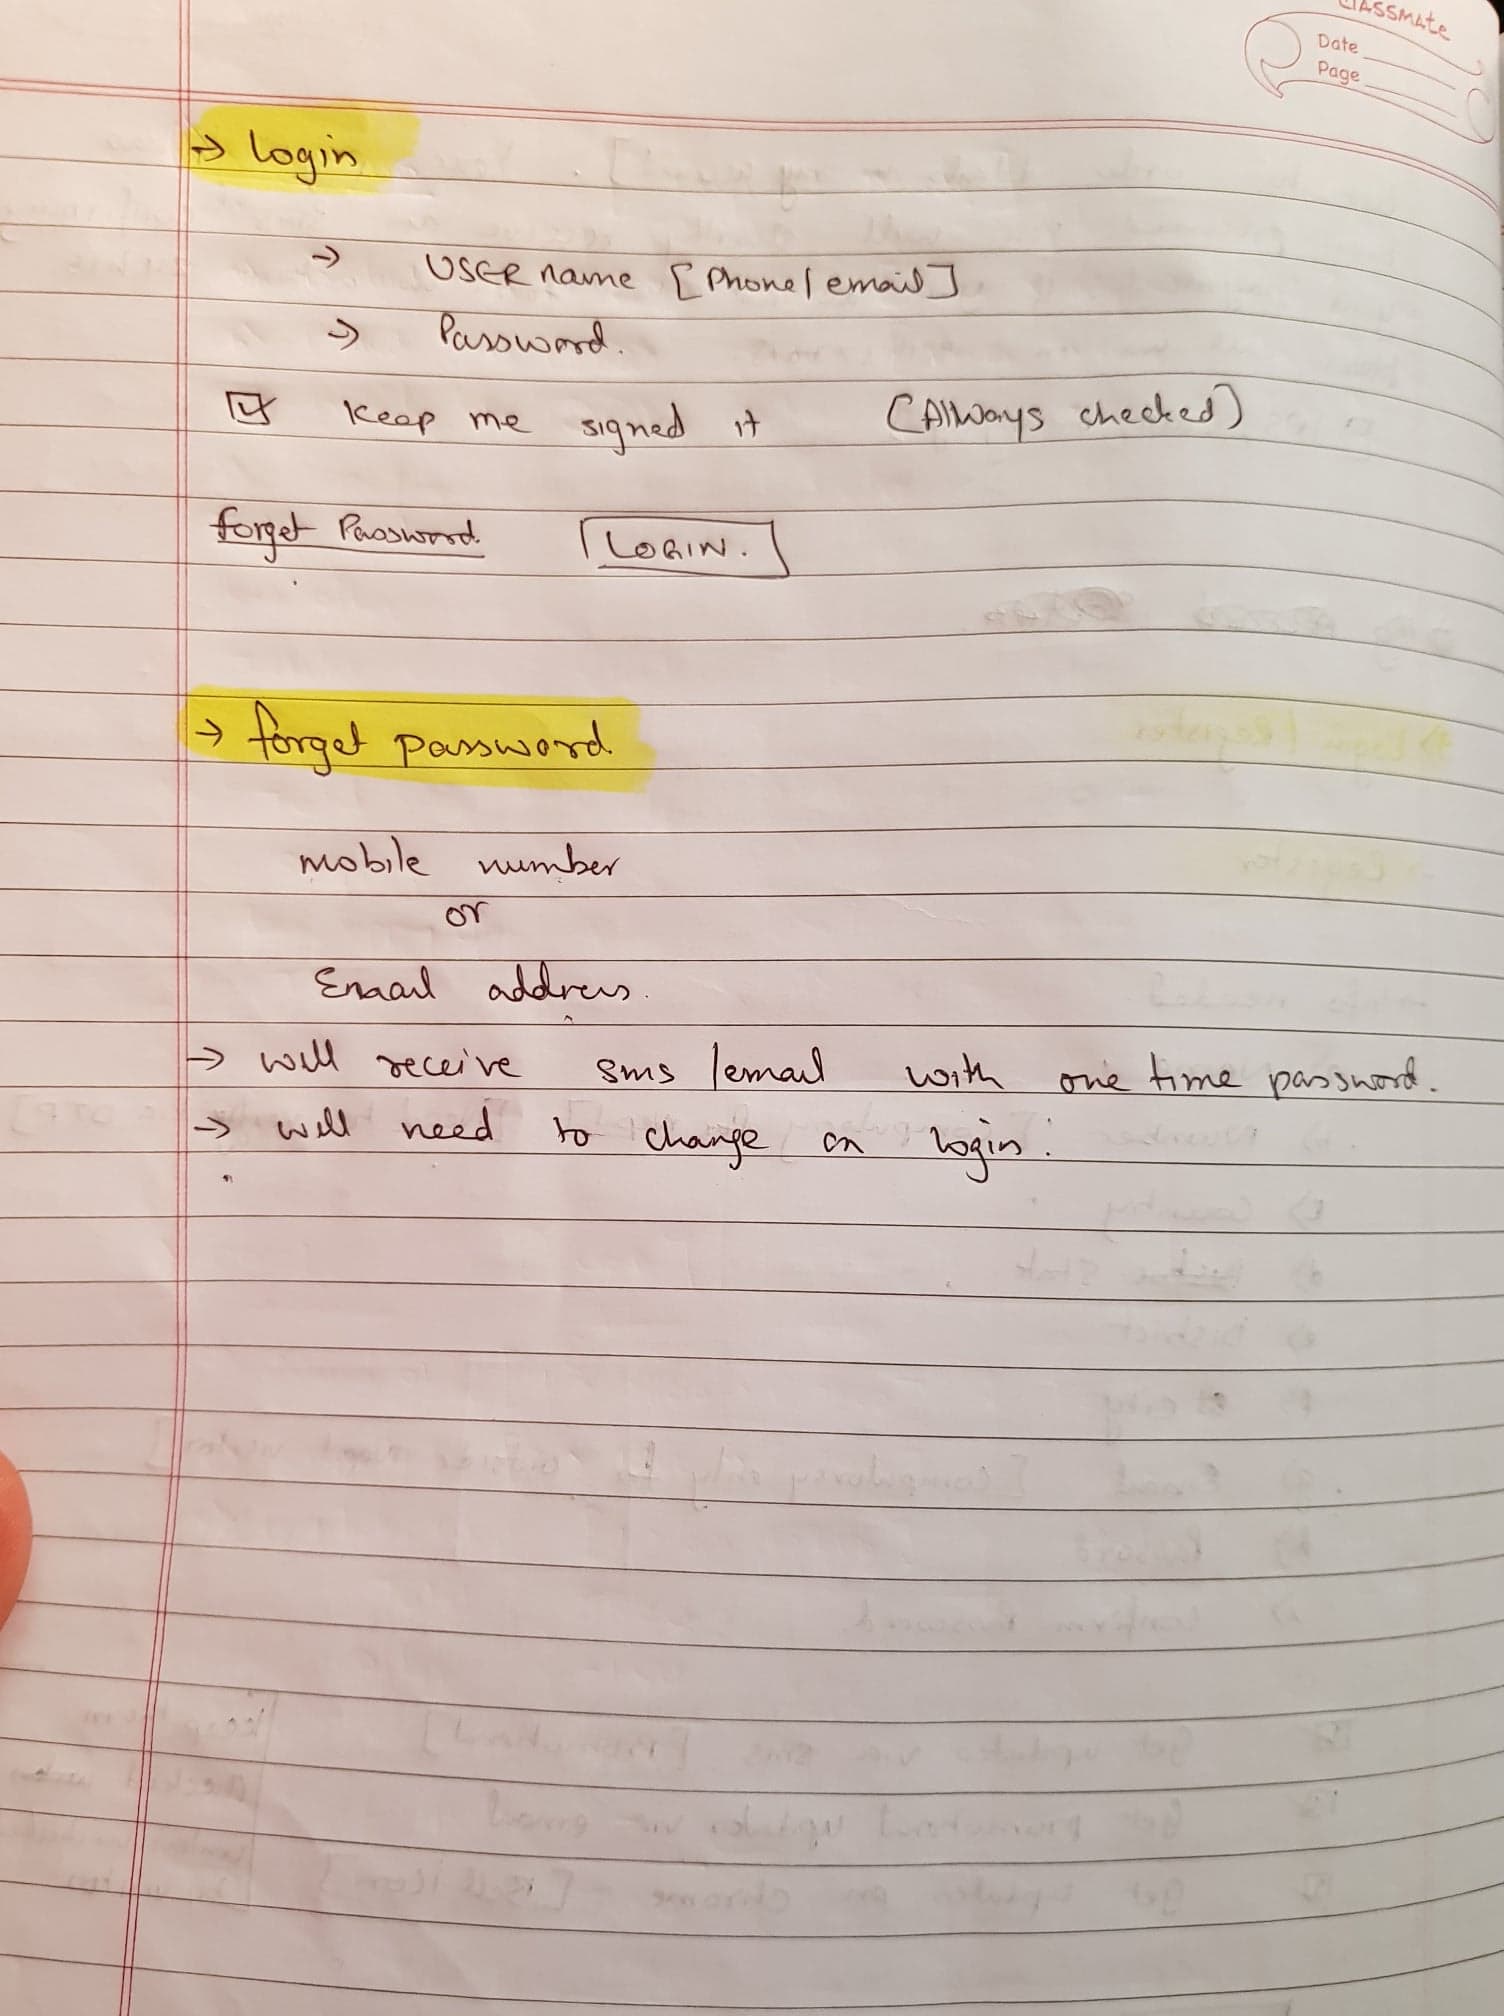 classmate
Date
Page
→ login
→ USER name [Phone/email]
→ Password.
☑ Keep me signed it (Always checked)
forget Password [LOGIN.]
→ forget password
mobile number
or
Email address.
→ will receive sms/email with one time password.
→ will need to change on login.